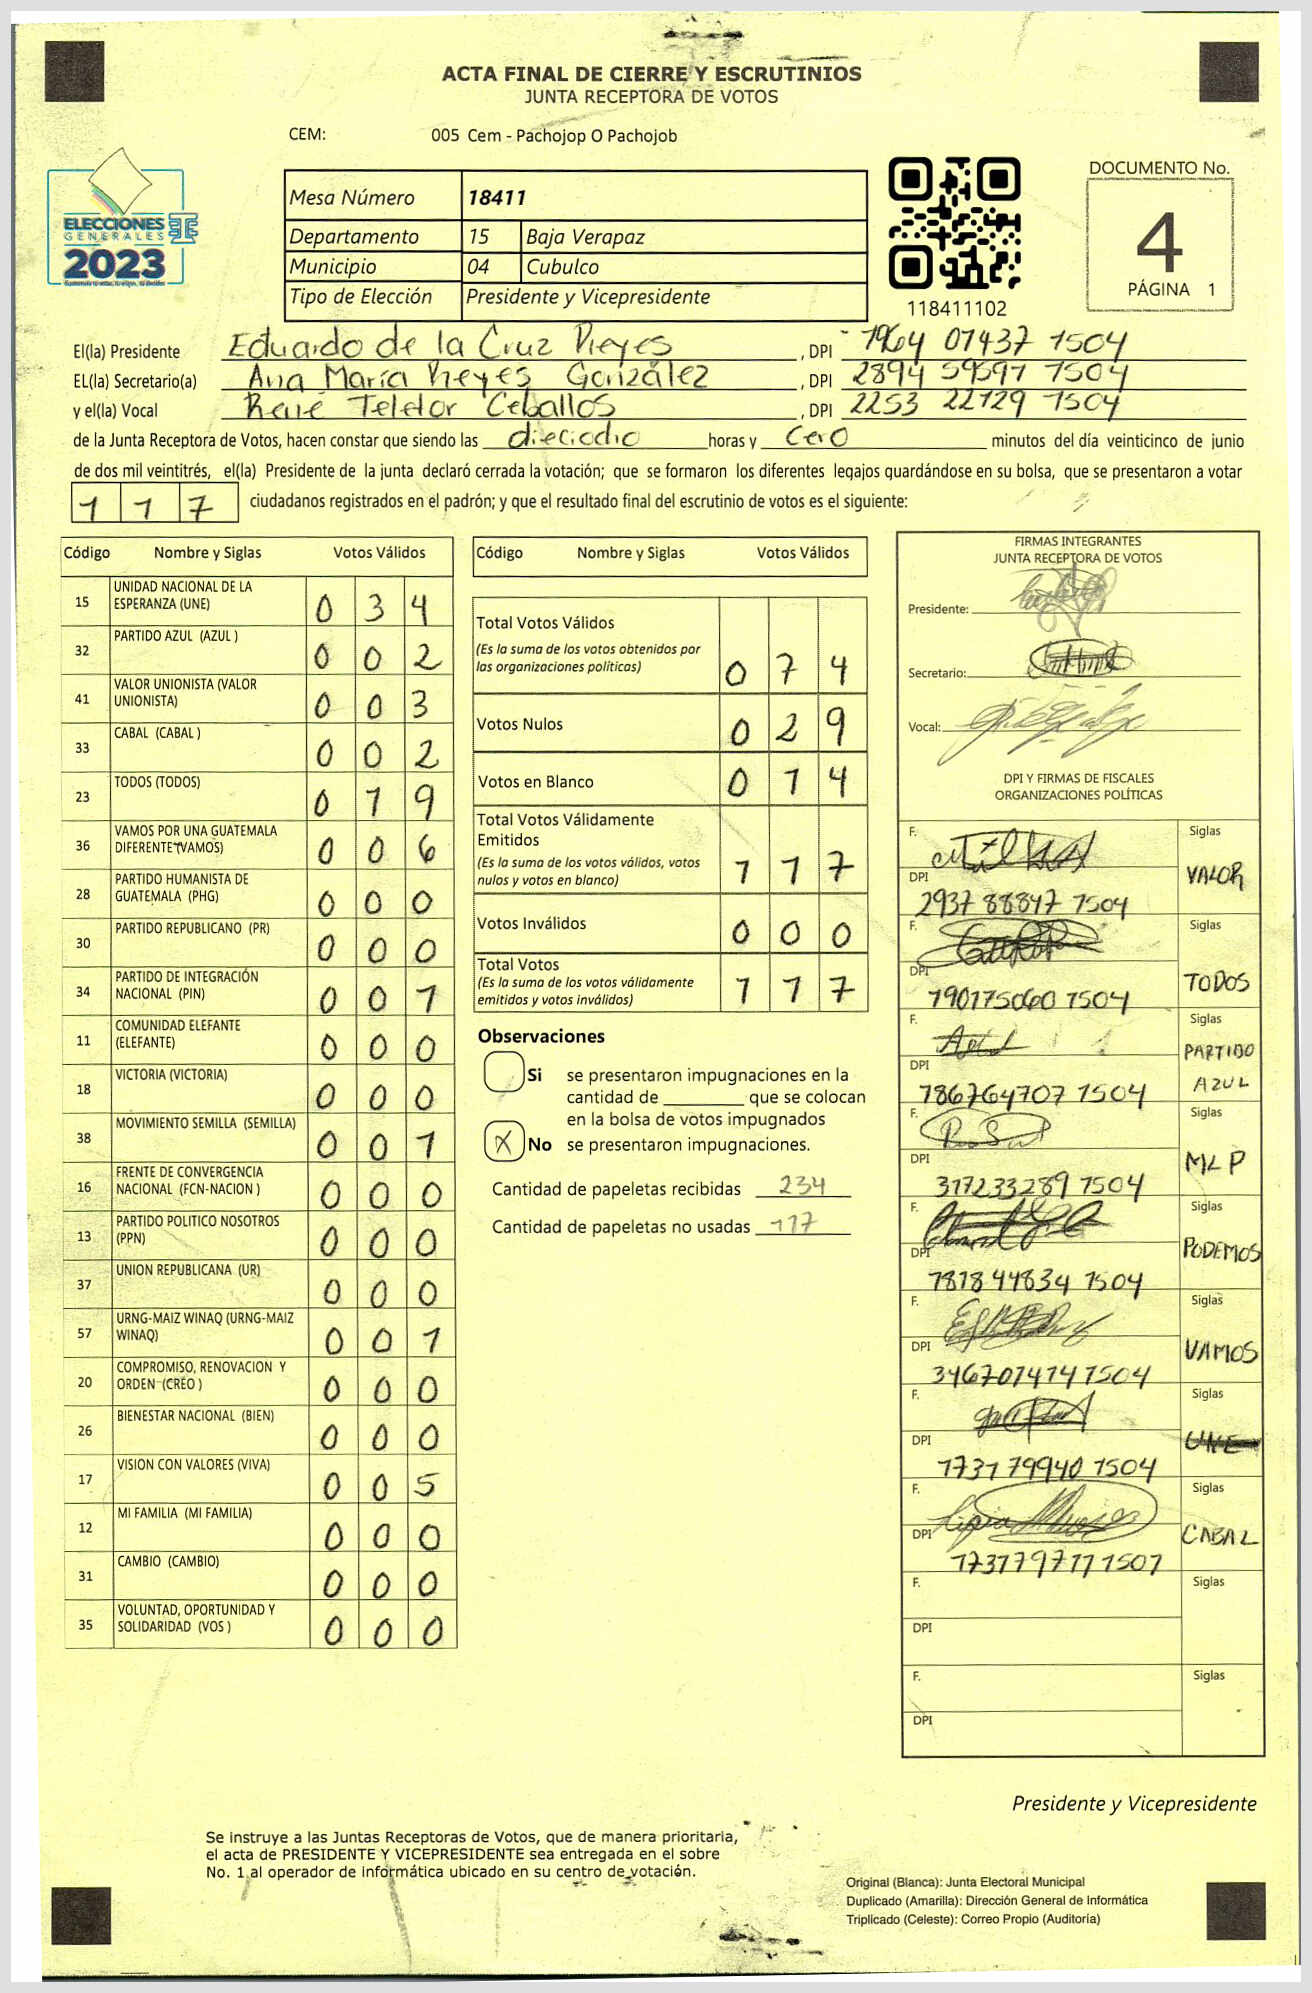 ACTA FINAL DE CIERRE Y ESCRUTINIOS
JUNTA RECEPTORA DE VOTOS
CEM: 005 Cem - Pachojop O Pachojob
ELECCIONES
GENERALES
2023
Mesa Número 18411
Departamento 15 Baja Verapaz
Municipio 04 Cubulco
Tipo de Elección Presidente y Vicepresidente
118411102
DOCUMENTO No.
4
PÁGINA 1
El(la) Presidente Eduardo de la Cruz Reyes , DPI 1964 07437 1504
EL(la) Secretario(a) Ana María Reyes González , DPI 2894 59597 1504
y el(la) Vocal René Teletor Ceballos , DPI 2253 22129 1504
de la Junta Receptora de Votos, hacen constar que siendo las dieciocho horas y cero minutos del día veinticinco de junio
de dos mil veintitrés, el(la) Presidente de la junta declaró cerrada la votación; que se formaron los diferentes legajos guardándose en su bolsa, que se presentaron a votar
117 ciudadanos registrados en el padrón; y que el resultado final del escrutinio de votos es el siguiente:
Código Nombre y Siglas Votos Válidos
15 UNIDAD NACIONAL DE LA ESPERANZA (UNE) 0 3 4
32 PARTIDO AZUL (AZUL ) 0 0 2
41 VALOR UNIONISTA (VALOR UNIONISTA) 0 0 3
33 CABAL (CABAL ) 0 0 2
23 TODOS (TODOS) 0 1 9
36 VAMOS POR UNA GUATEMALA DIFERENTE (VAMOS) 0 0 6
28 PARTIDO HUMANISTA DE GUATEMALA (PHG) 0 0 0
30 PARTIDO REPUBLICANO (PR) 0 0 0
34 PARTIDO DE INTEGRACIÓN NACIONAL (PIN) 0 0 1
11 COMUNIDAD ELEFANTE (ELEFANTE) 0 0 0
18 VICTORIA (VICTORIA) 0 0 0
38 MOVIMIENTO SEMILLA (SEMILLA) 0 0 1
16 FRENTE DE CONVERGENCIA NACIONAL (FCN-NACION ) 0 0 0
13 PARTIDO POLITICO NOSOTROS (PPN) 0 0 0
37 UNION REPUBLICANA (UR) 0 0 0
57 URNG-MAIZ WINAQ (URNG-MAIZ WINAQ) 0 0 1
20 COMPROMISO, RENOVACION Y ORDEN (CREO ) 0 0 0
26 BIENESTAR NACIONAL (BIEN) 0 0 0
17 VISION CON VALORES (VIVA) 0 0 5
12 MI FAMILIA (MI FAMILIA) 0 0 0
31 CAMBIO (CAMBIO) 0 0 0
35 VOLUNTAD, OPORTUNIDAD Y SOLIDARIDAD (VOS ) 0 0 0
Código Nombre y Siglas Votos Válidos
Total Votos Válidos 0 7 4
(Es la suma de los votos obtenidos por
las organizaciones políticas)
Votos Nulos 0 2 9
Votos en Blanco 0 1 4
Total Votos Válidamente
Emitidos 1 1 7
(Es la suma de los votos válidos, votos
nulos y votos en blanco)
Votos Inválidos 0 0 0
Total Votos 1 1 7
(Es la suma de los votos válidamente
emitidos y votos inválidos)
Observaciones
Si se presentaron impugnaciones en la
cantidad de ________ que se colocan
en la bolsa de votos impugnados
X No se presentaron impugnaciones.
Cantidad de papeletas recibidas 234
Cantidad de papeletas no usadas 117
FIRMAS INTEGRANTES
JUNTA RECEPTORA DE VOTOS
Presidente:
Secretario:
Vocal:
DPI Y FIRMAS DE FISCALES
ORGANIZACIONES POLÍTICAS
F. Siglas
VALOR
DPI
2937 88847 1504
F. Siglas
TODOS
DPI
190175060 1504
F. Siglas
PARTIDO
AZUL
DPI
186764707 1504
F. Siglas
MLP
DPI
317233289 1504
F. Siglas
PODEMOS
DPI
1818 44834 1504
F. Siglas
VAMOS
DPI
346707474 1504
F. Siglas
UNE
DPI
1731 79940 1504
F. Siglas
CABAL
DPI
F. Siglas
DPI
F. Siglas
DPI
Presidente y Vicepresidente
Se instruye a las Juntas Receptoras de Votos, que de manera prioritaria,
el acta de PRESIDENTE Y VICEPRESIDENTE sea entregada en el sobre
No. 1 al operador de informática ubicado en su centro de votación.
Original (Blanca): Junta Electoral Municipal
Duplicado (Amarilla): Dirección General de Informática
Triplicado (Celeste): Correo Propio (Auditoría)